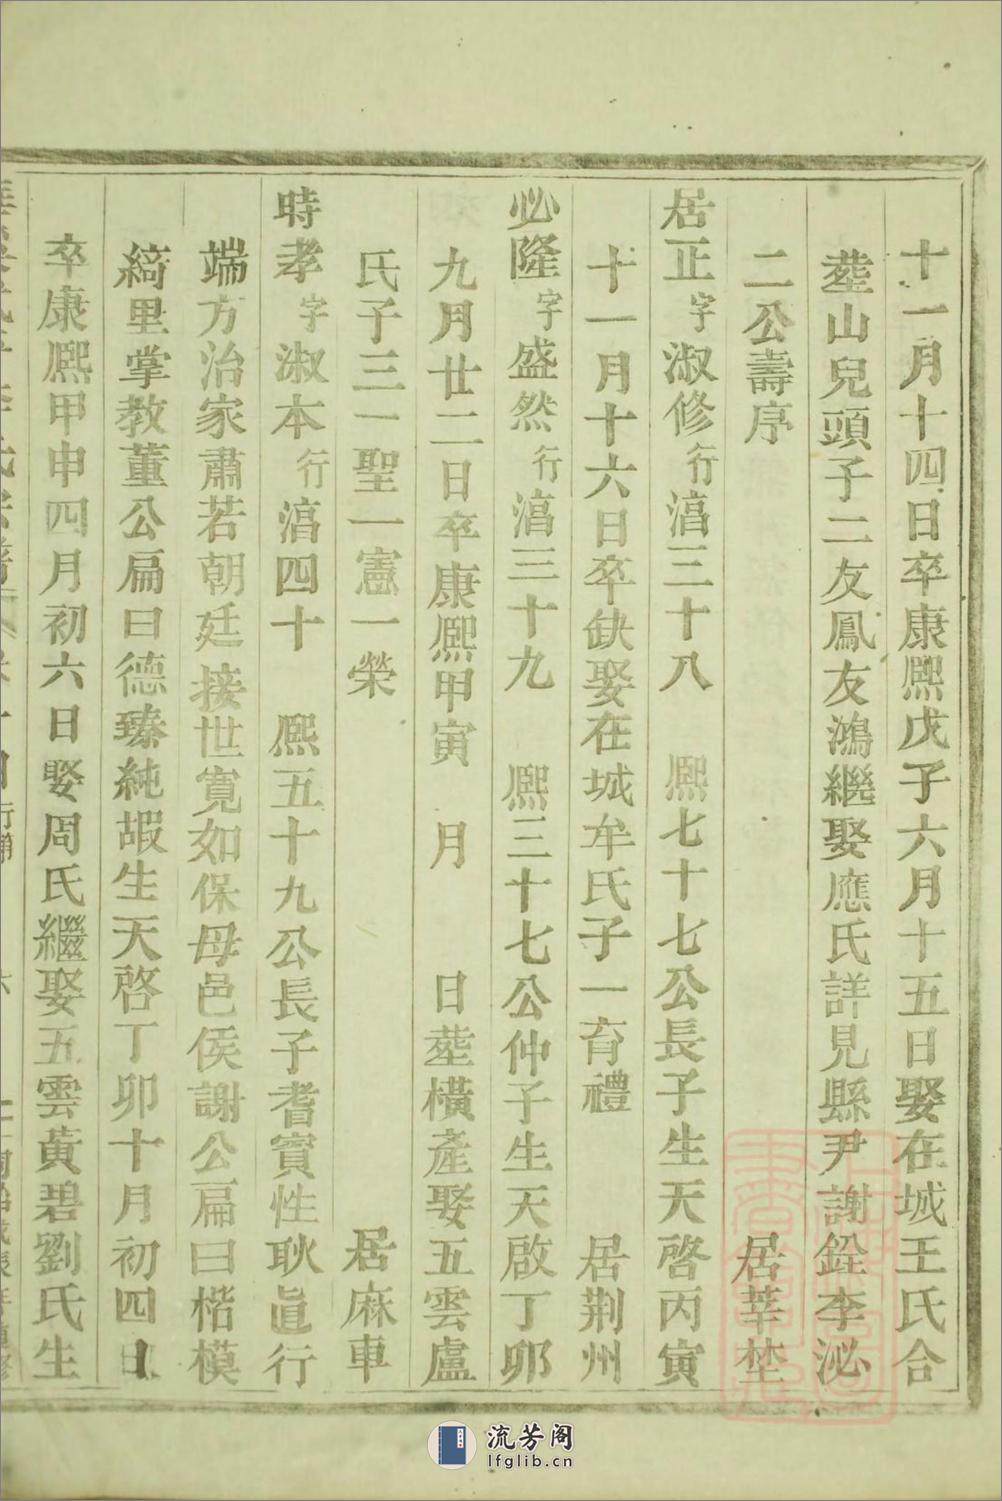 十一月十四日卒康熙戊子六月十五日娶在城王氏合
塟山皃頭子二友鳳友鴻繼娶應氏詳見縣尹謝銓李泌
二公壽序 居莘塟
居正字淑修行滈三十八 熙七十七公長子生天啓丙寅
十一月十六日卒缺娶在城牟氏子一育禮 居荆州
必隆字盛然行滈三十九 熙三十七公仲子生天啟丁卯
九月廿二日卒康熙甲寅 月 日塟橫產娶五雲盧
氏子三一聖一憲一榮 居麻車
時孝字淑本行滈四十 熙五十九公長子耆賓性耿眞行
端方治家肅若朝廷接世寬如保母邑侯謝公扁曰楷模
綺里掌教董公扁曰德臻純嘏生天啓丁卯十月初四日
卒康熙甲申四月初六日娶周氏繼娶五雲黃碧劉氏生
流芳阁
lfglib.cn